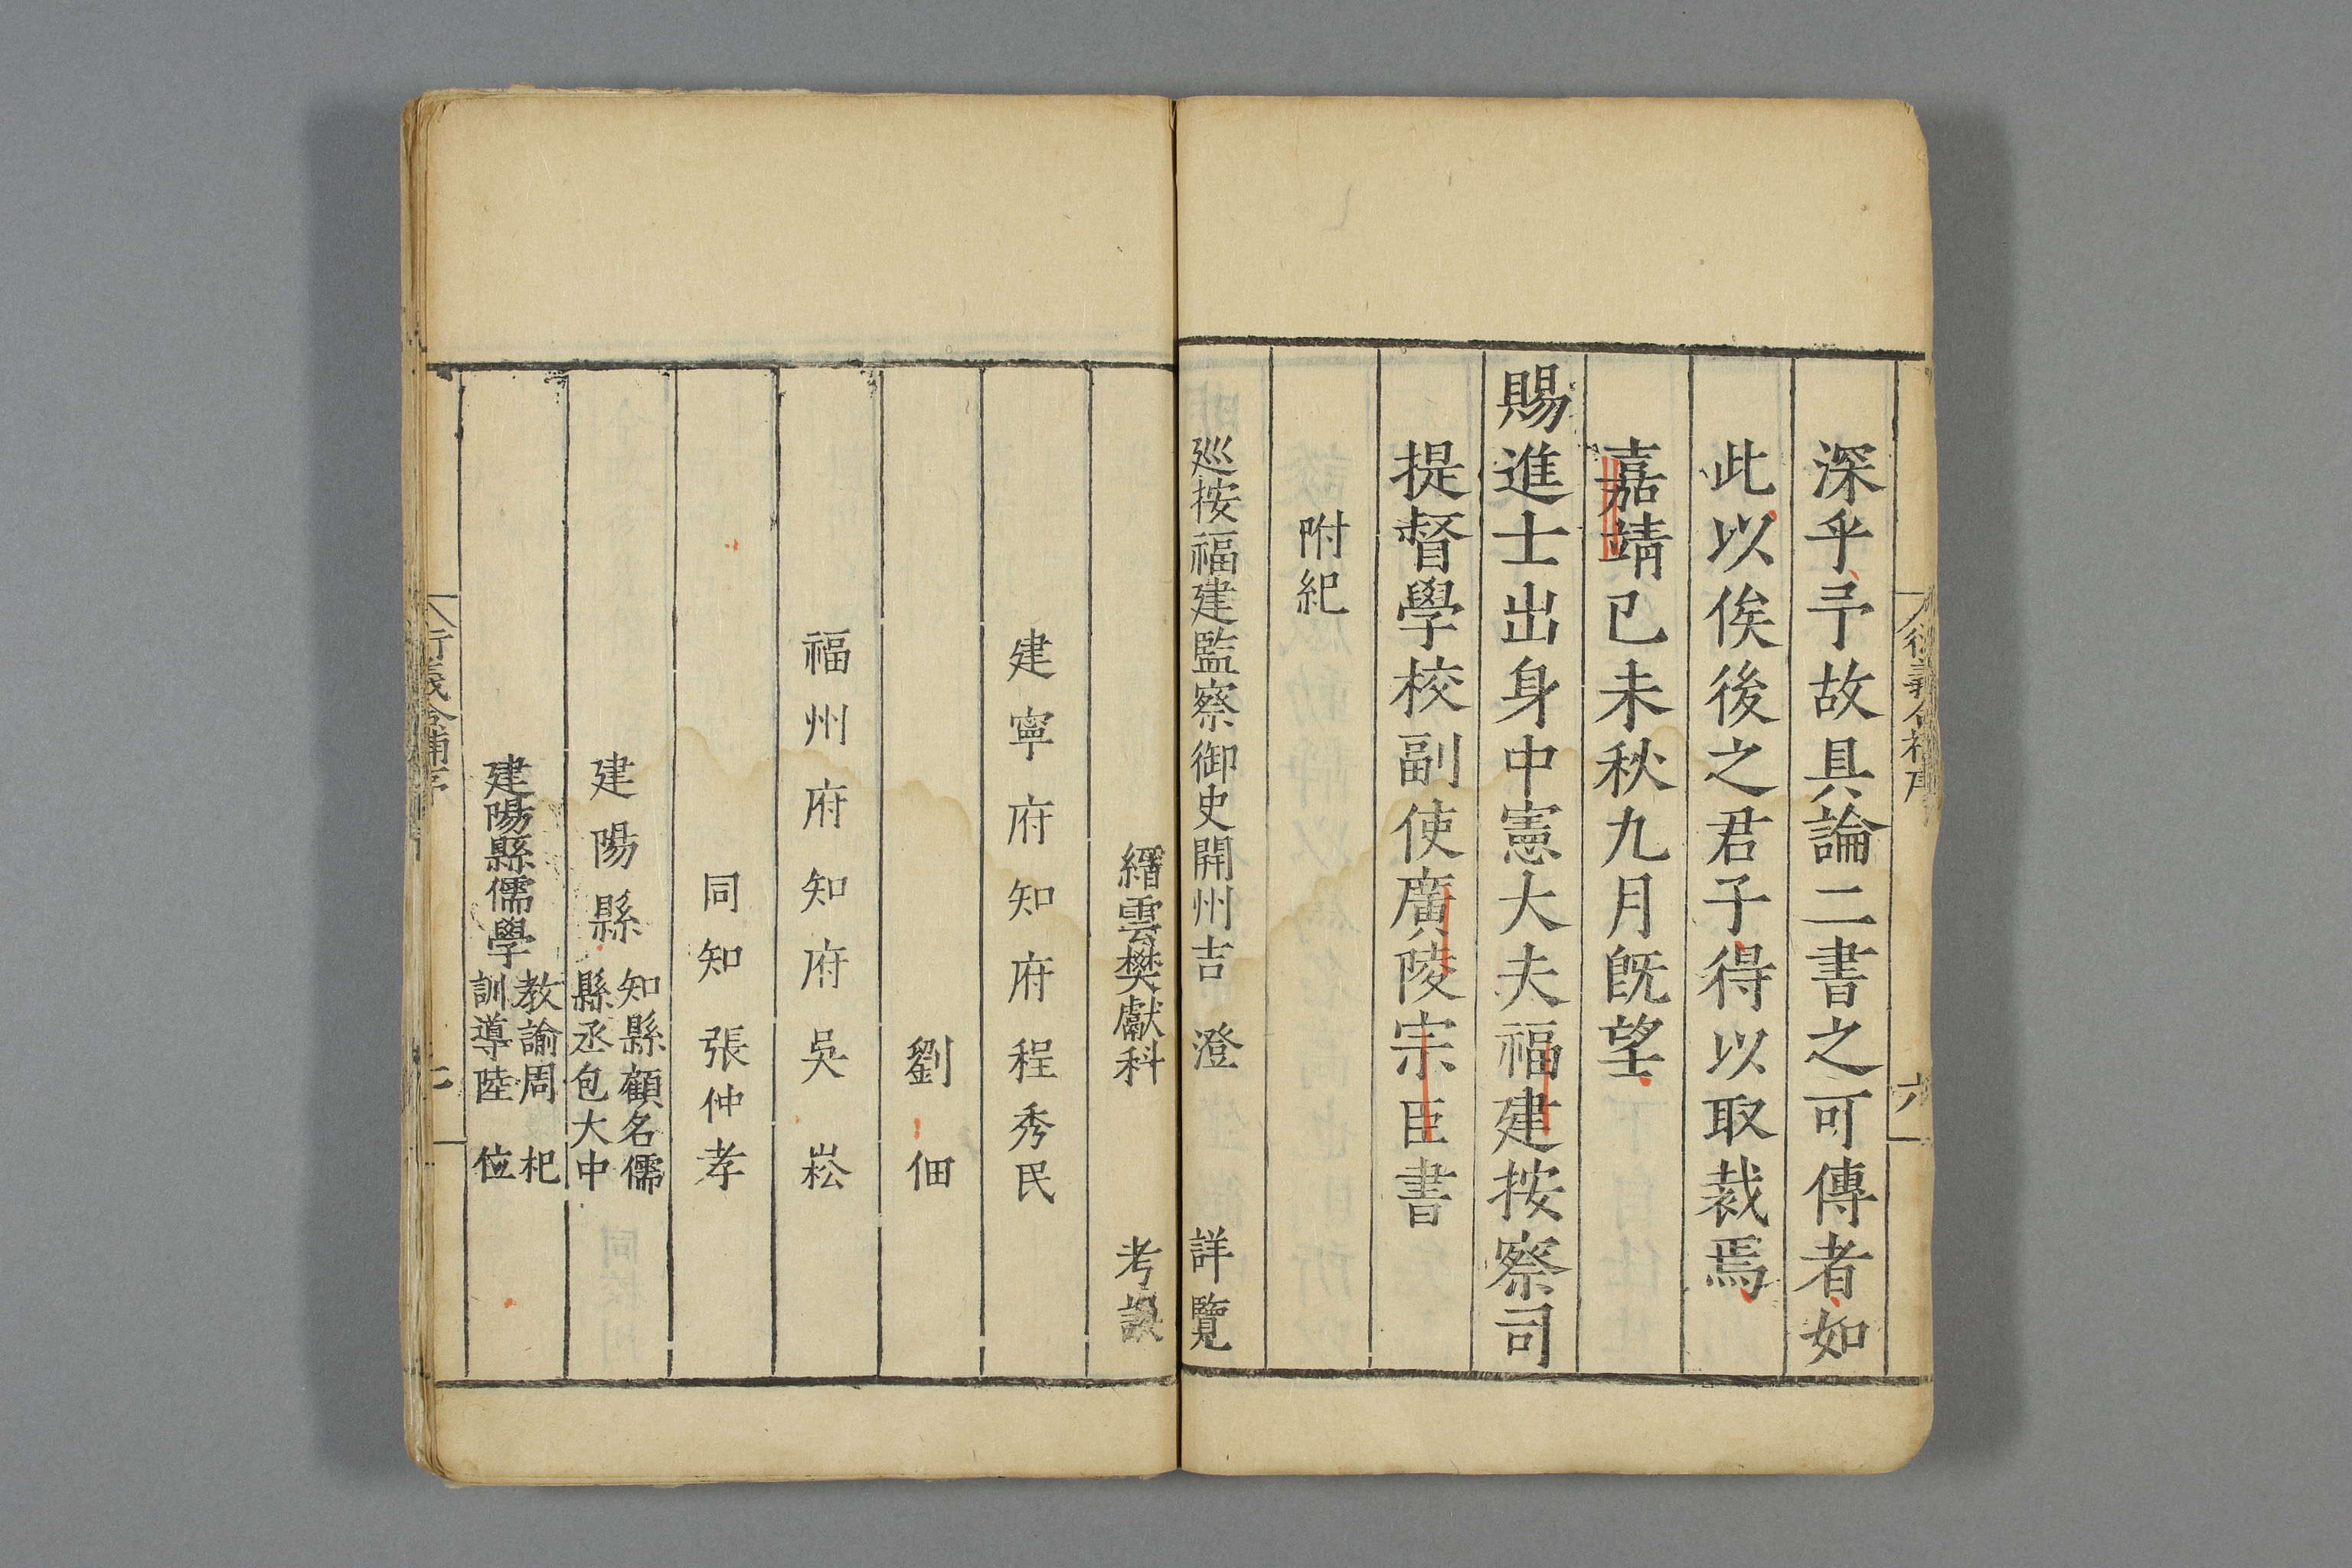 深乎予故具論二書之可傳者如
此以俟後之君子得以取裁焉
嘉靖己未秋九月旣望
賜進士出身中憲大夫福建按察司
提督學校副使廣陵宗臣書
附紀
巡按福建監察御史開州吉 澄 詳覽
縉雲樊獻科 考
建寧府知府程秀民
劉 佃
福州府知府吳 崧
同知 張仲孝
建陽縣 知縣顧名儒
縣丞包大中
建陽縣儒學 教諭周 杞
訓導陸 位
六